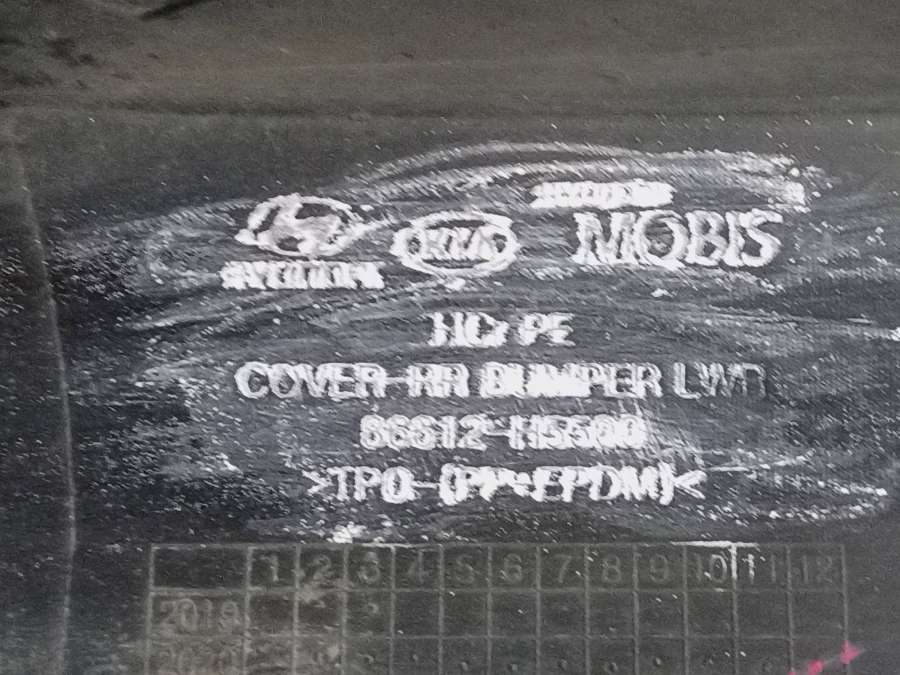 HYUNDAI
HYUNDAI KIA MOBIS
HCr PE
COVER-RR BUMPER LWR
86612-H5500
>TPO-(PP+EPDM)<
1 2 3 4 5 6 7 8 9 10 11 12
2019
2020